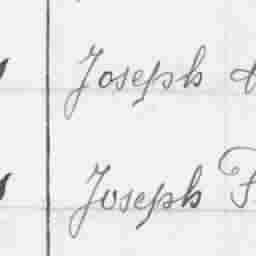 Joseph
Joseph F